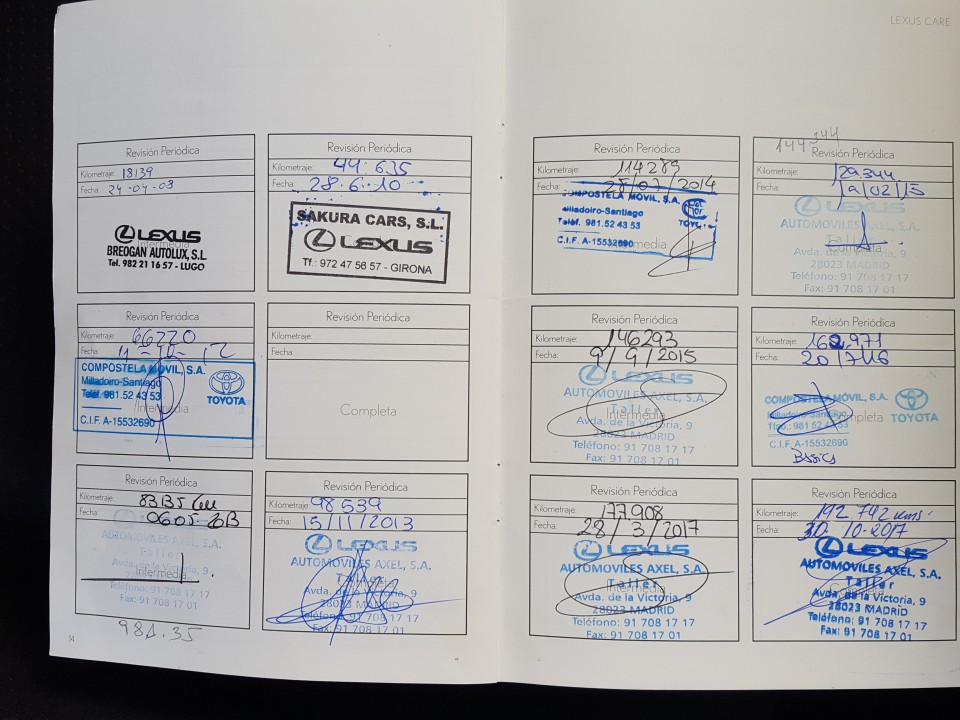 LEXUS CARE
Revisión Periódica
Kilometraje: 18139
Fecha: 24-04-08
LEXUS
Intermedia
BREOGAN AUTOLUX, S.L
Tel. 982 21 16 57 - LUGO
Revisión Periódica
Kilometraje: 44.635
Fecha: 28.6.10
SAKURA CARS, S.L.
LEXUS
Tf.: 972 47 56 57 - GIRONA
Revisión Periódica
Kilometraje: 66220
Fecha:
COMPOSTELA MOVIL, S.A.
Milladoiro-Santiago
Teléf. 981.52 43 53
TOYOTA
Intermedia
C.I.F. A-15532690
Revisión Periódica
Kilometraje:
Fecha:
Completa
Revisión Periódica
Kilometraje: 83135
Fecha:
LEXUS
AUTOMOVILES AXEL, S.A.
Taller
Intermedia
Avda. de la Victoria, 9
28023 MADRID
Teléfono: 91 708 17 17
Fax: 91 708 17 01
981.35
Revisión Periódica
Kilometraje: 98539
Fecha: 15/11/2013
LEXUS
AUTOMOVILES AXEL, S.A.
Taller
Avda. de la Victoria, 9
28023 MADRID
Teléfono: 91 708 17 17
Fax: 91 708 17 01
14
Revisión Periódica
Kilometraje: 114289
Fecha: 28/07/2014
COMPOSTELA MOVIL, S.A.
Milladoiro-Santiago
Teléf. 981.52 43 53
Intermedia
C.I.F. A-15532690
144
Revisión Periódica
Kilometraje: 129.344
Fecha:
LEXUS
AUTOMOVILES AXEL, S.A.
Taller
Completa
Avda. de la Victoria, 9
28023 MADRID
Teléfono: 91 708 17 17
Fax: 91 708 17 01
Revisión Periódica
Kilometraje: 146293
Fecha: 9/9/2015
LEXUS
AUTOMOVILES AXEL, S.A.
Taller
Intermedia
Avda. de la Victoria, 9
28023 MADRID
Teléfono: 91 708 17 17
Fax: 91 708 17 01
Revisión Periódica
Kilometraje: 162.971
Fecha: 20/7/16
COMPOSTELA MÓVIL, S.A.
Milladoiro-Santiago
Completa
TOYOTA
C.I.F. A-15532690
Revisión Periódica
Kilometraje: 177.908
Fecha: 28/3/2017
LEXUS
AUTOMOVILES AXEL, S.A.
Taller
Intermedia
Avda. de la Victoria, 9
28023 MADRID
Teléfono: 91 708 17 17
Fax: 91 708 17 01
Revisión Periódica
Kilometraje: 192 742 kms.
Fecha: 30-10-2017
LEXUS
AUTOMOVILES AXEL, S.A.
Taller
Avda. de la Victoria, 9
28023 MADRID
Teléfono: 91 708 17 17
Fax: 91 708 17 01